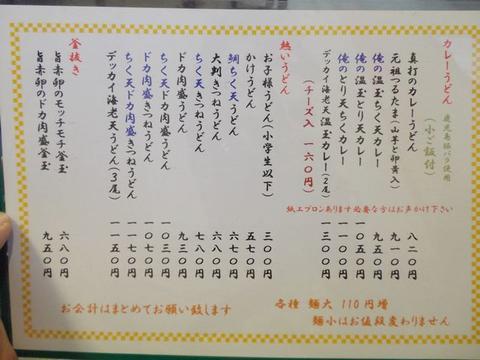 カレーうどん 鹿児島豚バラ使用
(小ご飯付)
真打のカレーうどん 八二〇円
元祖つるたま(山芋と卵黄入) 九一〇円
俺の温玉ちく天カレー 九五〇円
俺の温玉とり天カレー 一〇五〇円
俺のとり天ちくカレー 一一〇〇円
デッカイ海老天温玉カレー(2尾) 一三〇〇円
(チーズ入 一六〇円)
紙エプロンあります必要な方はお声かけ下さい
熱いうどん
お子様うどん(小学生以下) 三〇〇円
かけうどん 五七〇円
鯛ちく天うどん 六七〇円
大判きつねうどん 六八〇円
ちく天きつねうどん 七八〇円
ドカ肉盛うどん 九三〇円
ちく天ドカ肉盛うどん 一〇三〇円
ドカ肉盛きつねうどん 一〇七〇円
ちく天ドカ肉盛きつねうどん 一一五〇円
デッカイ海老天うどん(3尾) 一一五〇円
釜抜き
旨赤卵のモッチモチ釜玉 六八〇円
旨赤卵のドカ肉盛釜玉 九五〇円
お会計はまとめてお願い致します
各種 麺大 110円増
麺小はお値段変わりません